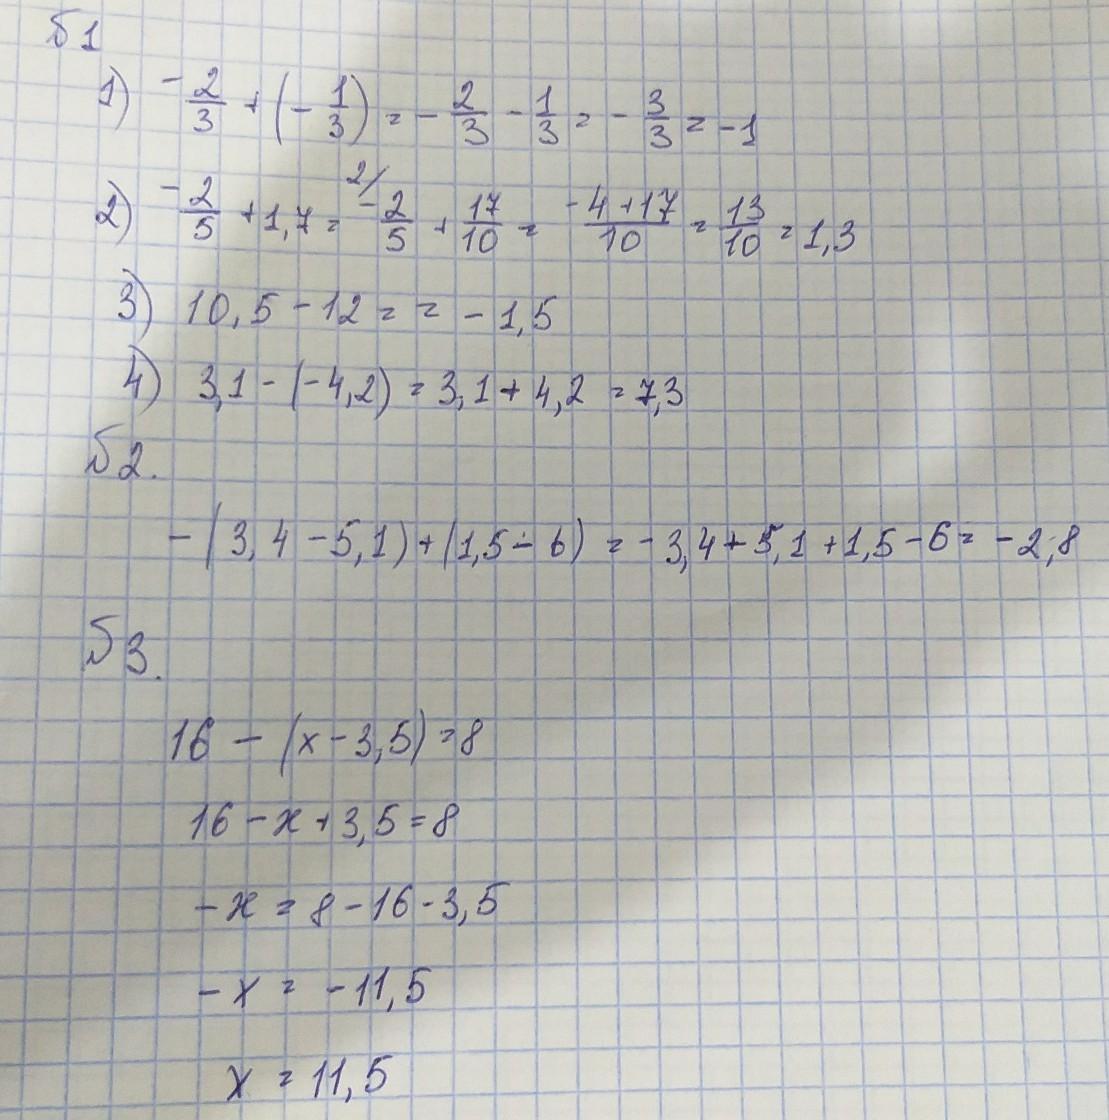 Б1
1) -2/3 + (-1/3) = -2/3 - 1/3 = -3/3 = -1
2) -2/5 + 1,7 = 2/ -2/5 + 17/10 = -4+17/10 = 13/10 = 1,3
3) 10,5 - 12 = = -1,5
4) 3,1 - (-4,2) = 3,1 + 4,2 = 7,3
Б2.
-(3,4 - 5,1) + (1,5 - 6) = -3,4 + 5,1 + 1,5 - 6 = -2,8
Б3.
16 - (x - 3,5) = 8
16 - x + 3,5 = 8
-x = 8 - 16 - 3,5
-x = -11,5
x = 11,5